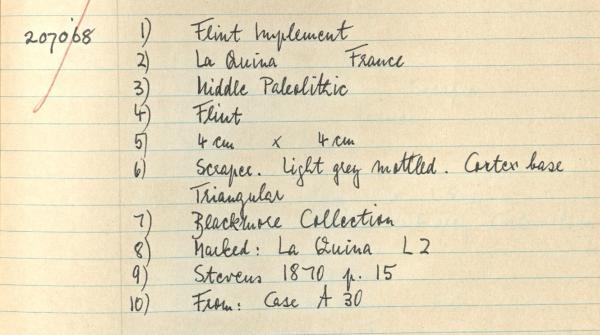 2070'68 1) Flint Implement
2) La Quina France
3) Middle Paleolithic
4) Flint
5) 4 cm x 4 cm
6) Scraper. Light grey mottled. Cortex base
Triangular
7) Blackmore Collection
8) Marked: La Quina L 2
9) Stevens 1870 p. 15
10) From: Case A 30